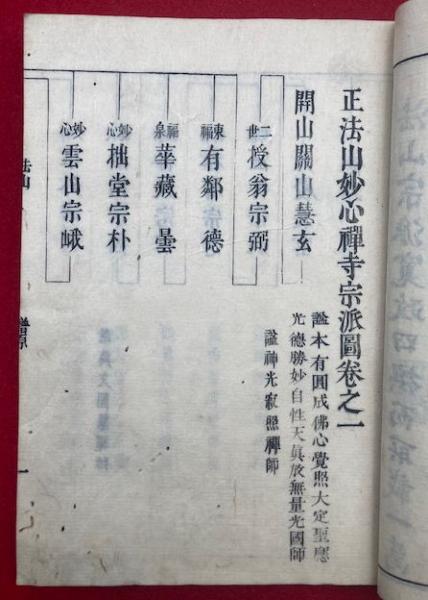 正法山妙心禪寺宗派圖卷之一
開山關山慧玄
諡本有圓成佛心覺照大定聖應
光德勝妙自性天眞放無量光國師
二世
授翁宗弼
諡神光寂照禪師
東福
有鄰德
福泉
華藏曇
妙心
拙堂宗朴
妙心
雲山宗峨
法山
一